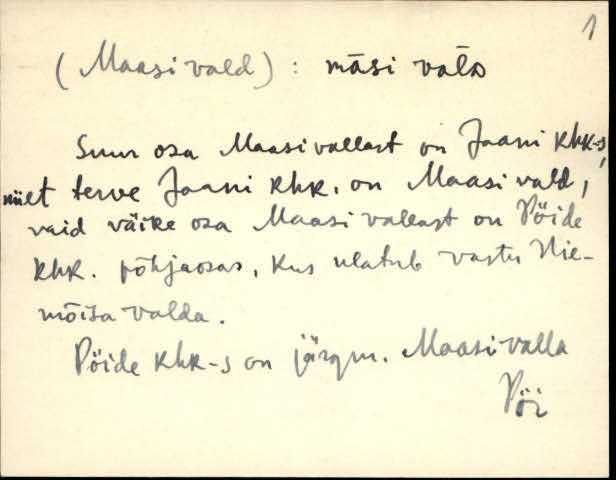 1
(Maasi vald) : māsi vald
Suur osa Maasi vallast on Jaani khk-s,
niiet terve Jaani khk. on Maasi vald,
vaid väike osa Maasi vallast on Pöide
khk. põhjaosas, kus ulatub vastu Uue-
mõisa valda.
Pöide khk-s on järgm. Maasi valla
Pöi